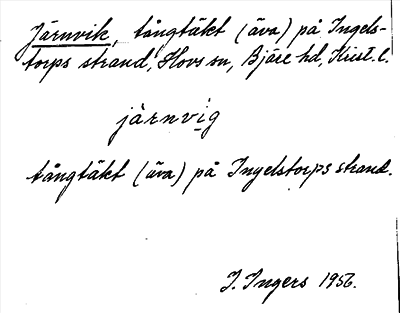 Järnvik, tångtäkt (äva) på Ingels-
torps strand, Hovs sn, Bjäre hd, Krist. l.
järnvig
tångtäkt (äva) på Ingelstorps strand.
I. Ingers 1956.